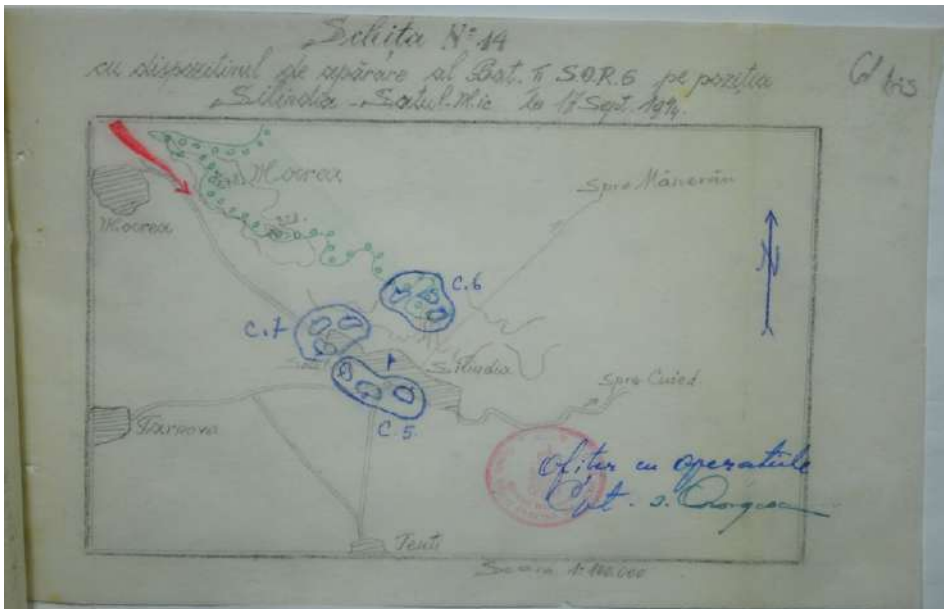 Schița Nº 14
cu dispozitivul de apărare al Bat. II S.O.R. 6 pe poziția
Silindia - Satul-Mic la 17 Sept. 1944.
Mocrea
Mocrea
Spre Mânerău
N
C. 6
C. 7
Silindia
Spre Cuied
C. 5.
Târnova
Ofițer cu operațiile
Cpt.
Scara 1:100.000